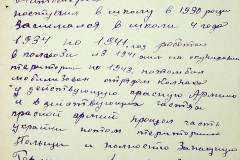 поступил в школу в 1930 году
занимался в школи 4 года
1934 по 1941 год работал
в колхозе из 1941 на оккупирован
територии по 1943 потом был
мобилизован отрядом
у действующую красную Армию
и в действующих частях
красной армий прошол часть
украйни потом територию
Польщи и полность Западную